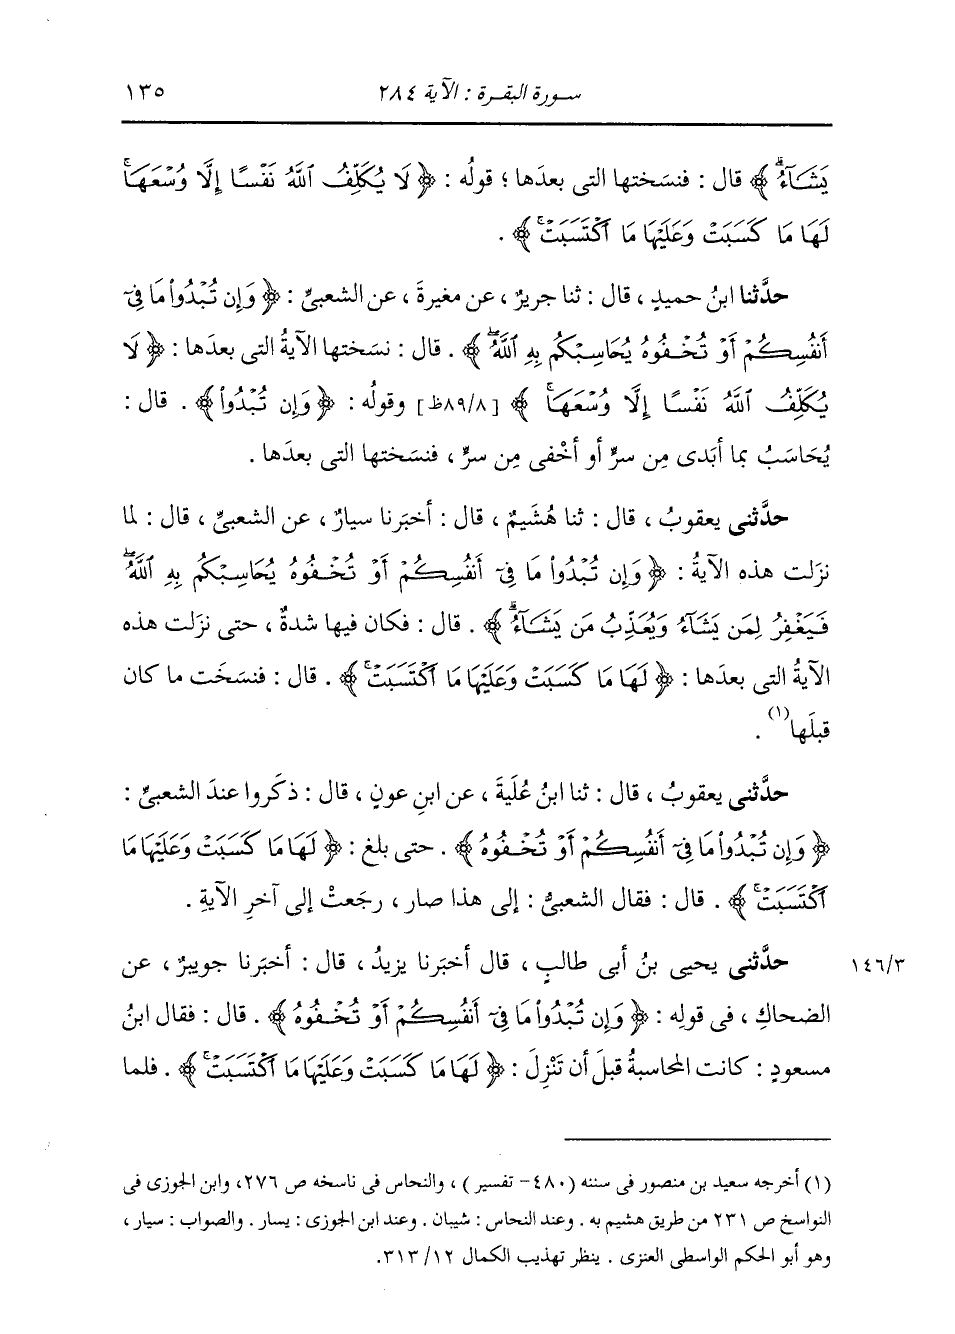 سورة البقرة : الآية ٢٨٤ ١٣٥
يَشَآءُ ﴾ قال : فنسَختها التى بعدَها ؛ قولُه : ﴿ لَا يُكَلِّفُ اللَّهُ نَفْسًا إِلَّا وُسْعَهَا
لَهَا مَا كَسَبَتْ وَعَلَيْهَا مَا اكْتَسَبَتْ ﴾ .
حدَّثنا ابنُ حميدٍ ، قال : ثنا جريرٌ ، عن مغيرةَ ، عن الشعبىِّ : ﴿ وَإِن تُبْدُوا مَا فِىٓ
أَنفُسِكُمْ أَوْ تُخْفُوهُ يُحَاسِبْكُم بِهِ اللَّهُ ﴾ . قال : نسَختها الآيةُ التى بعدَها : ﴿ لَا
يُكَلِّفُ اللَّهُ نَفْسًا إِلَّا وُسْعَهَا ﴾ [٨٩/٨ظ] وقولُه : ﴿ وَإِن تُبْدُوا ﴾ . قال :
يُحَاسَبُ بما أبَدى مِن سرٍّ أو أخْفى مِن سرٍّ ، فنسَختها التى بعدَها .
حدَّثنى يعقوبُ ، قال : ثنا هُشَيمٌ ، قال : أخبَرنا سيارٌ ، عن الشعبىِّ ، قال : لما
نزَلت هذه الآيةُ : ﴿ وَإِن تُبْدُوا مَا فِىٓ أَنفُسِكُمْ أَوْ تُخْفُوهُ يُحَاسِبْكُم بِهِ اللَّهُ
فَيَغْفِرُ لِمَن يَشَآءُ وَيُعَذِّبُ مَن يَشَآءُ ﴾ . قال : فكان فيها شدةٌ ، حتى نزَلت هذه
الآيةُ التى بعدَها : ﴿ لَهَا مَا كَسَبَتْ وَعَلَيْهَا مَا اكْتَسَبَتْ ﴾ . قال : فنسَخَت ما كان
قبلَها(١) .
حدَّثنى يعقوبُ ، قال : ثنا ابنُ عُلَيةَ ، عن ابنِ عونٍ ، قال : ذكَروا عندَ الشعبىِّ :
﴿ وَإِن تُبْدُوا مَا فِىٓ أَنفُسِكُمْ أَوْ تُخْفُوهُ ﴾ . حتى بلغ : ﴿ لَهَا مَا كَسَبَتْ وَعَلَيْهَا مَا
اكْتَسَبَتْ ﴾ . قال : فقال الشعبىُّ : إلى هذا صار ، رجَعتْ إلى آخرِ الآيةِ .
حدَّثنى يحيى بنُ أبى طالبٍ ، قال أخبَرنا يزيدُ ، قال : أخبَرنا جويبرٌ ، عن ١٤٦/٣
الضحاكِ ، فى قولِه : ﴿ وَإِن تُبْدُوا مَا فِىٓ أَنفُسِكُمْ أَوْ تُخْفُوهُ ﴾ . قال : فقال ابنُ
مسعودٍ : كانت المحاسبةُ قبلَ أن تَنْزِلَ : ﴿ لَهَا مَا كَسَبَتْ وَعَلَيْهَا مَا اكْتَسَبَتْ ﴾ . فلما
(١) أخرجه سعيد بن منصور فى سننه (٤٨٠- تفسير) ، والنحاس فى ناسخه ص ٢٧٦، وابن الجوزى فى
النواسخ ص ٢٣١ من طريق هشيم به . وعند النحاس : شيبان . وعند ابن الجوزى : يسار . والصواب : سيار ،
وهو أبو الحكم الواسطى العنزى . ينظر تهذيب الكمال ٣١٣/١٢.